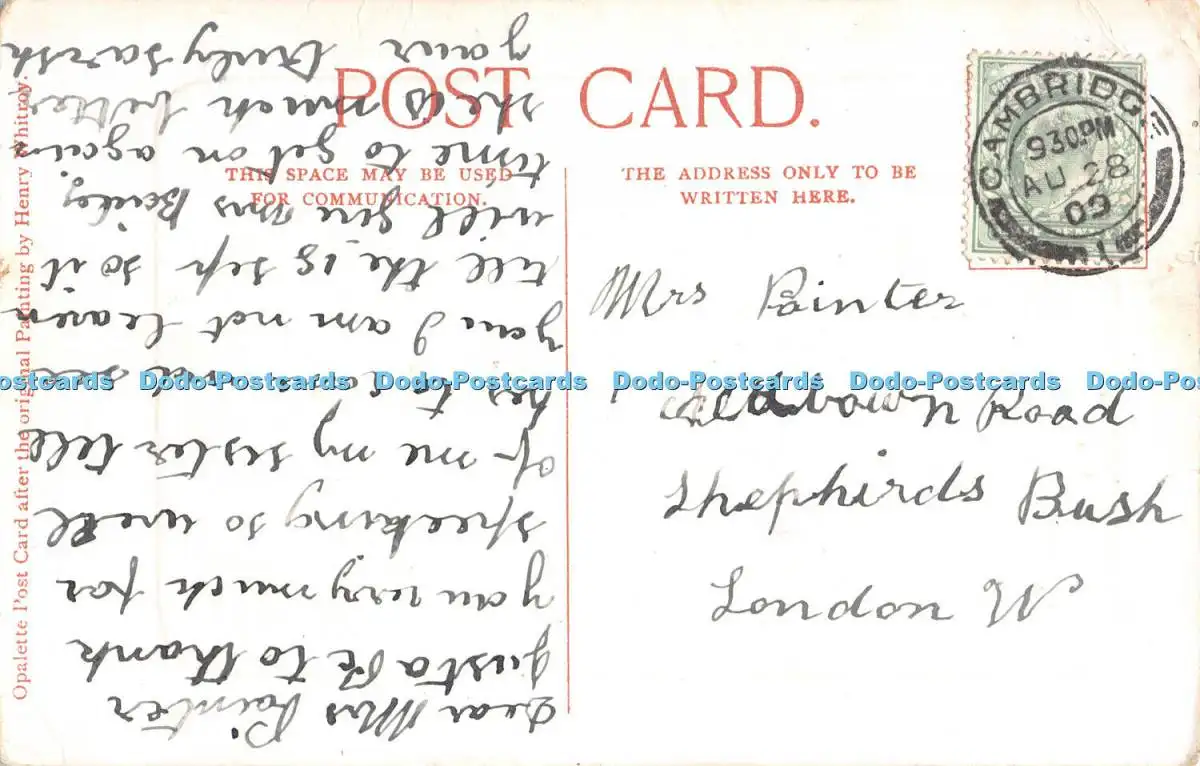 POST CARD.
THIS SPACE MAY BE USED
FOR COMMUNICATION.
THE ADDRESS ONLY TO BE
WRITTEN HERE.
CAMBRIDG
930PM
AU 28
09
Mrs Painter
Road
Shephirds Bush
London W
Dear Mrs Painter
Just a Pc to thank
you very much for
speaking so well
of me my sister tell
her to and see
you I am not leaven
till the 18 Sep so it
will give Mrs
time to get on again
she is much better
your truly Sarah
Opalette Post Card after the original Painting by Henry Whitroy.
Dodo-Postcards Dodo-Postcards Dodo-Postcards Dodo-Postcards Dodo-Postcards Dodo-Postcards